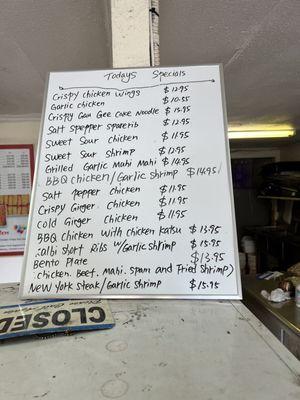 Todays Specials
Crispy chicken wings $12.95
Garlic chicken $10.55
Crispy Gau Gee Cake Noodle $15.95
Salt spepper sparerib $12.95
Sweet Sour chicken $11.55
Sweet Sour Shrimp $12.95
Grilled Garlic Mahi Mahi $14.95
BBQ chicken/Garlic shrimp $14.95
Salt pepper chicken $11.95
Crispy Ginger chicken $11.95
Cold Ginger chicken $11.95
BBQ chicken with chicken katsu $13.95
albi short Ribs w/Garlic shrimp $15.95
Bento Plate $13.95
chicken. Beef. Mahi. Spam and Fried Shrimp)
New York steak/Garlic shrimp $15.95
CLOSED